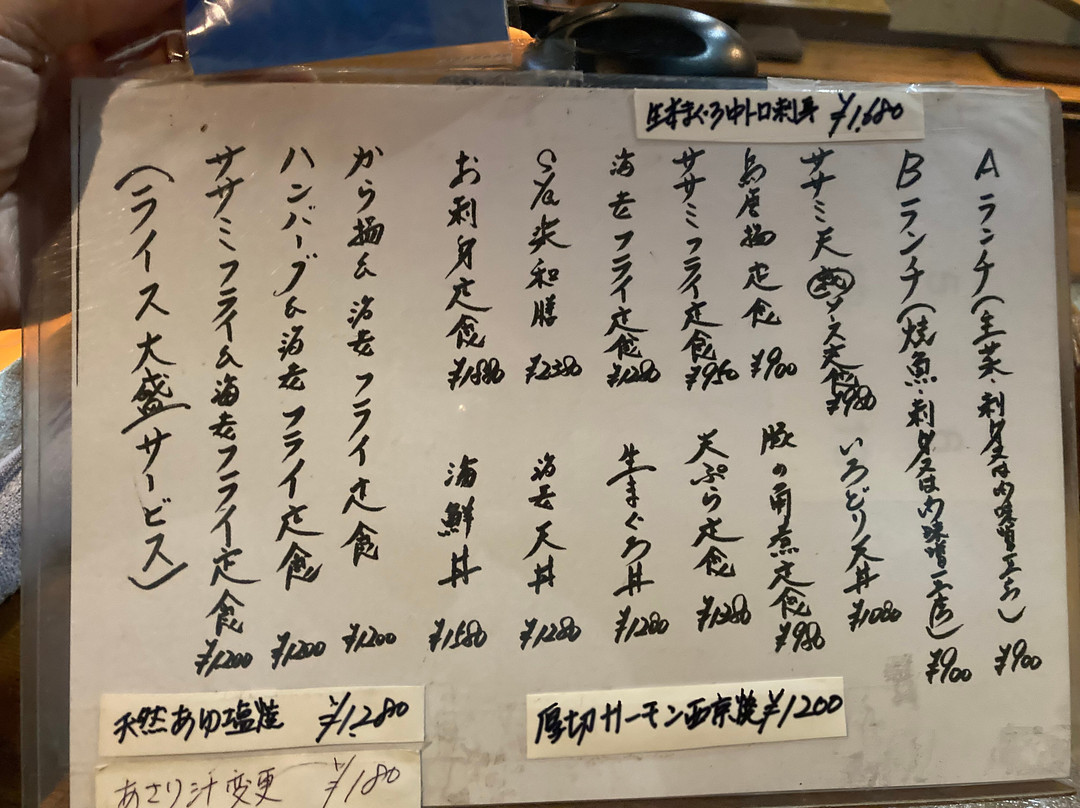 生本まぐろ中トロ刺身 ¥1,680
Aランチ(主菜・刺身又は肉味噌豆腐) ¥900
Bランチ(焼魚・刺身又は肉味噌豆腐) ¥900
ササミ天 ソース天食 ¥980
いろどり天丼 ¥1080
鳥唐揚定食 ¥900
豚の角煮定食 ¥980
ササミフライ定食 ¥950
天ぷら定食 ¥1280
海老フライ定食 ¥1280
生まぐろ丼 ¥1280
和膳
海老天丼 ¥1280
お刺身定食 ¥1580
海鮮丼 ¥1580
から揚&海老フライ定食 ¥1200
ハンバーグ&海老フライ定食 ¥1200
ササミフライ&海老フライ定食 ¥1200
(ライス大盛サービス)
天然あゆ塩焼 ¥1,280
厚切サーモン西京焼 ¥1200
あさり汁変更 ¥180